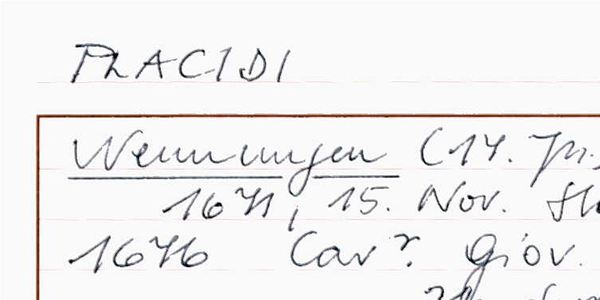 PLACIDI
Nennungen (14. Jh.)
1671, 15. Nov.
1676 Cav?. Giov.